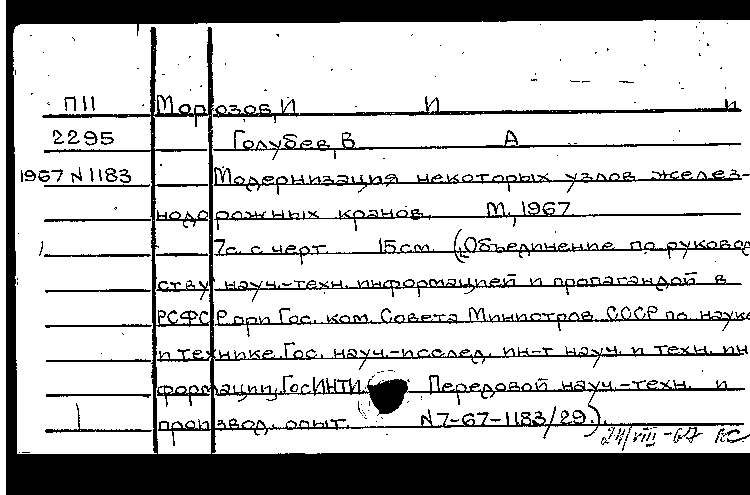 П11 Морозов, И И и
2295 Голубев, В А
1967 N 1183 Модернизация некоторых узлов желез-
нодорожных кранов. М., 1967
7с. с черт. 15см. (Объединение по руковод
ству науч.-техн. информацией и пропагандой в
РСФСР при Гос. ком. Совета Министров СССР по науке
и технике. Гос. науч.-исслед. ин-т науч. и техн. ин
формации. ГосИНТИ. Передовой науч.-техн. и
производ. опыт. N 7-67-1183/29).
24/VIII-67 КС